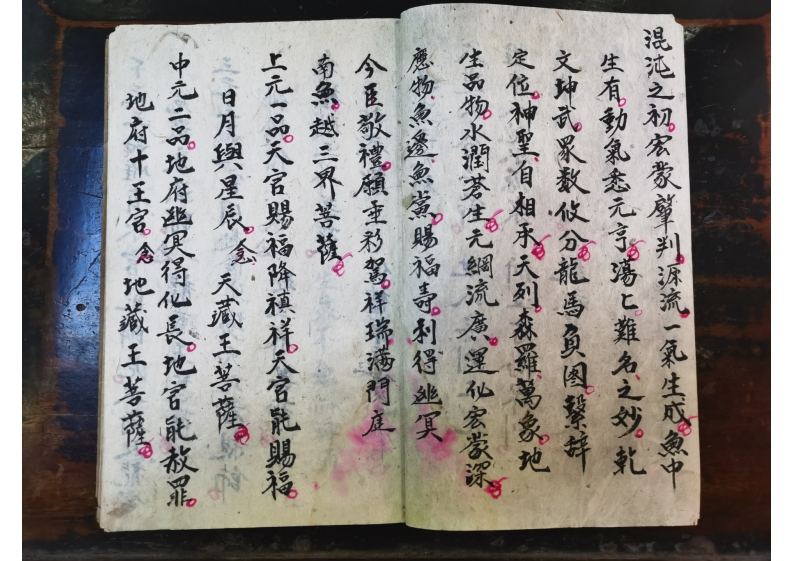 混沌之初宏蒙肇判源流一氣生成魚中
生有動氣悉元亨蕩〻難名之妙乾
文坤武眾数攸分龍馬負圖繫辞
定位神聖自相承天列森羅萬象地
生品物水潤蒼生元綱流廣運化宏蒙深
應物魚邊魚黨賜福壽利得幽冥
今臣敬禮願垂移駕祥瑞满門庭
南魚越三界菩薩
上元一品天官賜福降禎祥天官能賜福
日月與星辰念 天藏王菩薩
中元二品地府幽冥得化長地官能赦罪
地府十王宫念地藏王菩薩